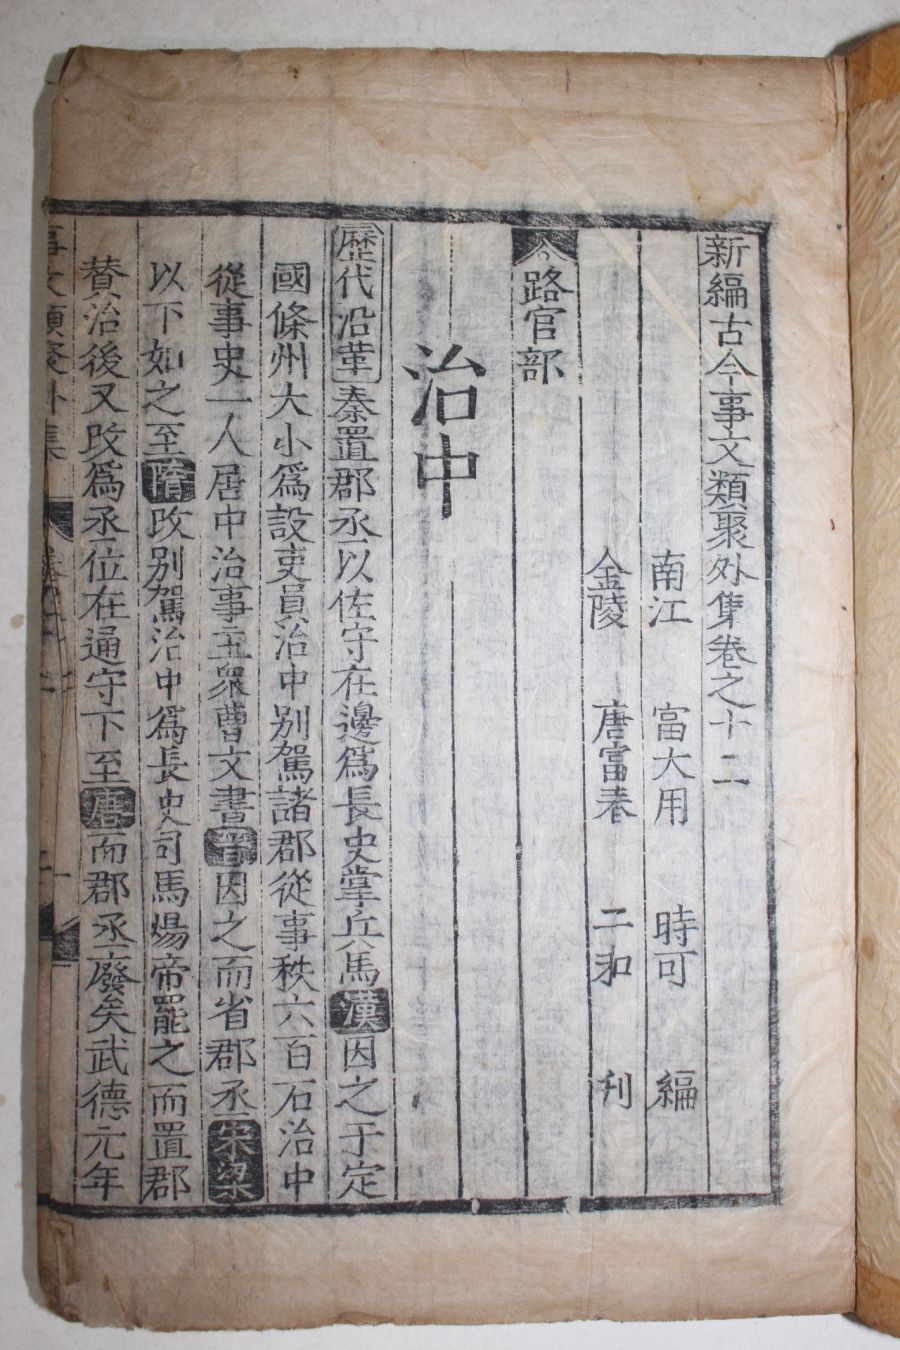 新編古今事文類聚外集卷之十二
南江 富大用 時可 編
金陵 唐富春 二和 刊
路官部
治中
歷代沿革秦置郡丞以佐守在邊爲長史掌兵馬漢因之于定
國條州大小爲設吏員治中別駕諸郡從事秩六百石治中
從事史一人居中治事主衆曹文書晉因之而省郡丞宋梁
以下如之至隋改別駕治中爲長史司馬煬帝罷之而置郡
賛治後又改爲丞位在通守下至唐而郡丞廢矣武德元年
事文類聚外集